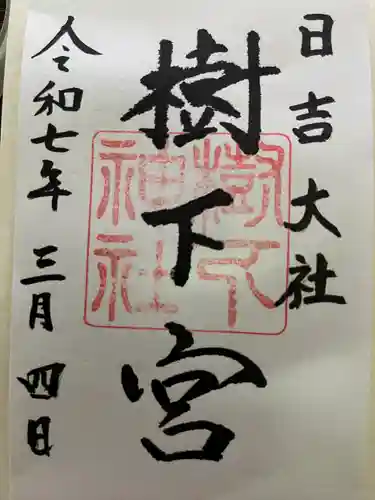 日吉大社
樹下宮
樹下神社
令和七年三月四日